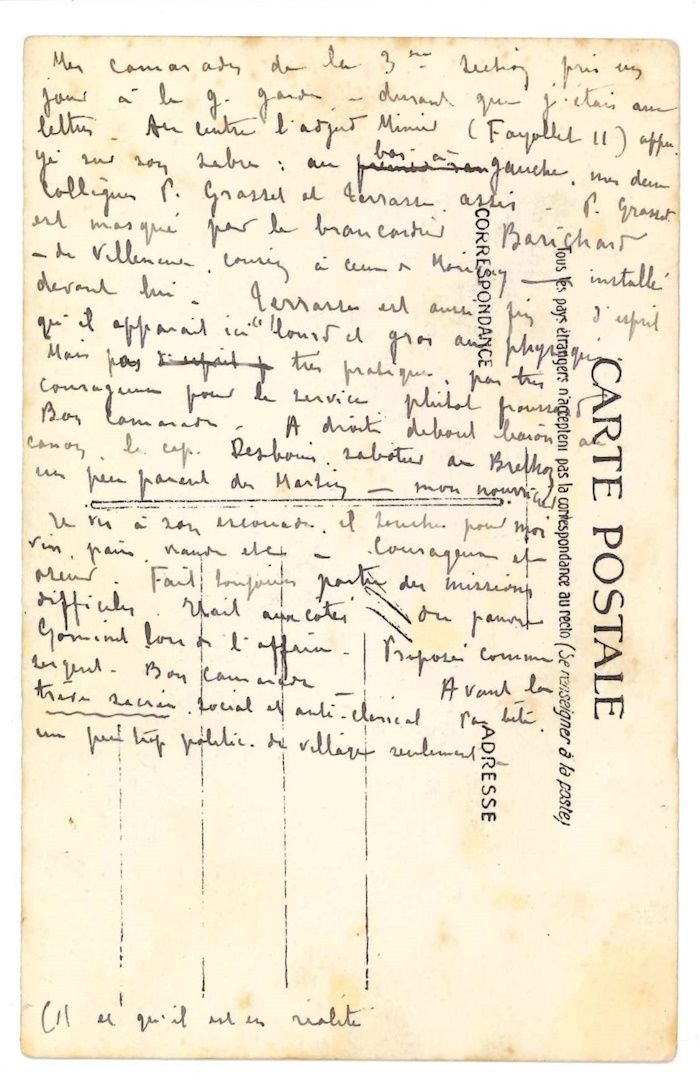 Mes camarades de la 3me Section pris un
jour à la g. garde _ durant que j'étais aux
lettres. Au centre l'adjud (Fayollet 11) appu
yé sur son sabre ; au premier rang bas à gauche, mes deux
Collègues P. Grasset et Terrasse, assis. P. Grasset
est masqué par le brancardier Barichard
_ de Villeneuve, cousin à ceux de _ installé
devant lui _ Terrasse est aussi fin d'esprit
qu'il apparait ici (1) lourd et gros au physique.
Mais pas d'esprit p très pratique, pas très
courageux pour le service plutôt froussard
Bon Camarade. A droite debout baïon au
canon, le cap. Desbois sabotier au
un peu parent des Martin _ mon nourricier
Je vis à son escouade, il touche pour moi
vin, pain, viande etc _ Courageux et
oseur. Fait toujours partie des missions
difficiles. Etait aux cotés du pauvre
lors de l'affaire. Proposé comme
sergent. Bon Camarade Avant la
social et anti-clérical pas bête.
un peu trop politic. de village seulement
(1) et qu'il est en réalité
CORRESPONDANCE
Tous les pays étrangers n'acceptent pas la correspondance au recto (Se renseigner à la poste)
CARTE POSTALE
ADRESSE